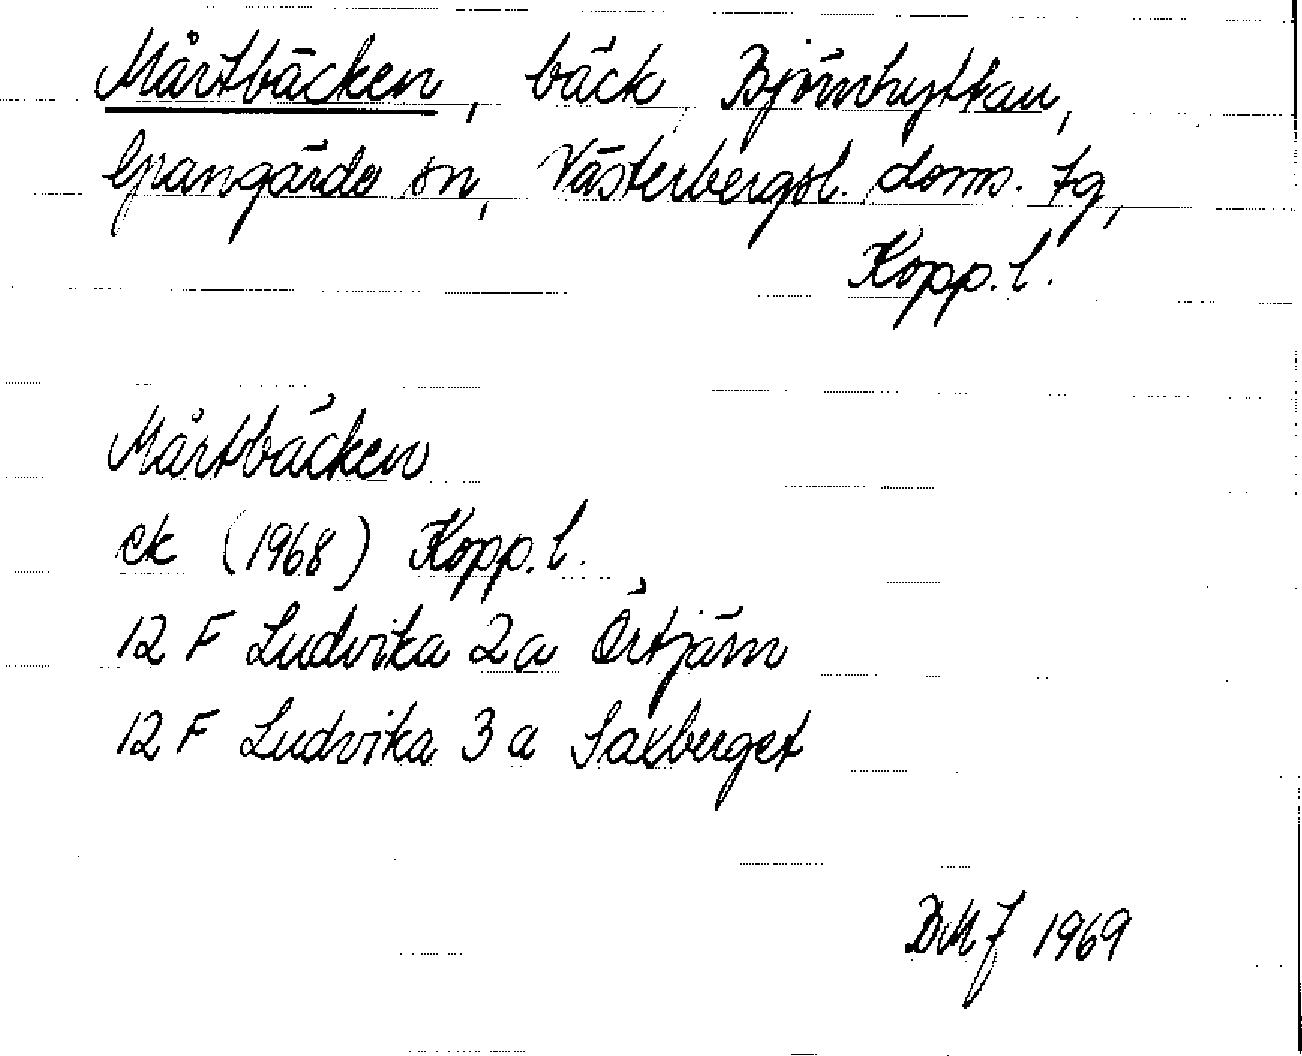 Mårtbäcken, bäck, Björnhyttan,
Grangärde sn, Västerbergsl. doms. tg,
Kopp. l.
Mårtbäcken
ek (1968) Kopp. l.
12 F Ludvika 2a Örtjärn
12 F Ludvika 3a Saxberget
BMJ 1969